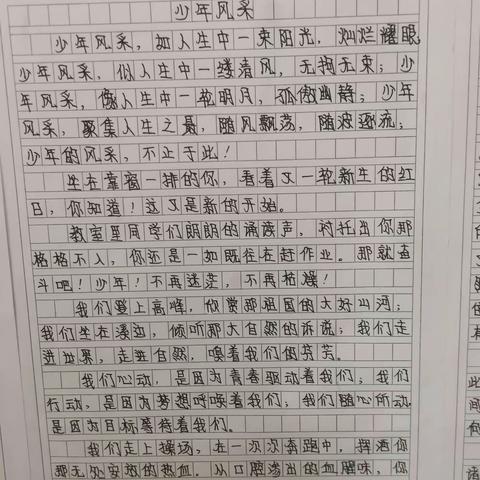 少年风采
少年风采，如人生中一束阳光，灿烂耀眼
少年风采，似人生中一缕清风，无拘无束；少
年风采，像人生中一轮明月，孤傲幽静；少年
风采，聚集人生之最，随风飘荡，随波逐流；
少年的风采，不止于此！
坐在靠窗一排的你，看着又一轮新生的红
日，你知道！这又是新的开始。
教室里同学们朗朗的诵读声，衬托出你那
格格不入，你还是一如既往在赶作业。那就奋
斗吧！少年！不再迷茫，不再枯燥！
我们登上高峰，欣赏那祖国的大好山河；
我们坐在溪边，倾听那大自然的诉说；我们走
进世界，走进自然，嗅着我们的芬芳。
我们心动，是因为青春驱动着我们；我们
行动，是因为梦想呼唤着我们；我们随心所动
是因为目标等待着我们。
我们走上操场，在一次次奔跑中，挥洒你
那无处安放的热血。从口腔渗出的血腥味，你